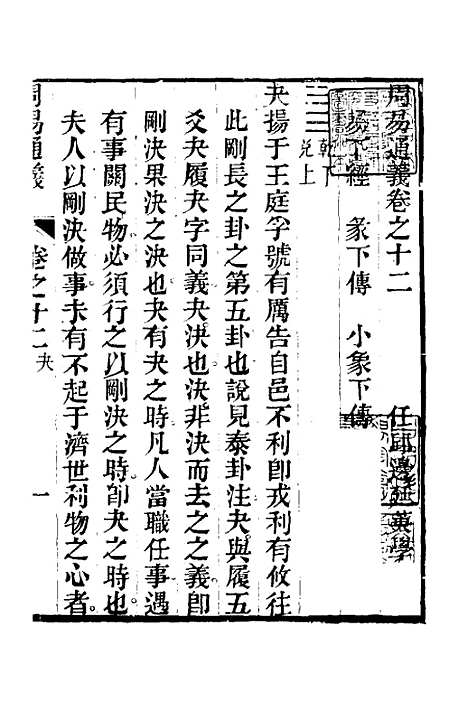 周易通義卷之十二　任邱邊廷英學
易下經　彖下傳　小象下傳
乾下
兌上
夬揚于王庭孚號有厲告自邑不利卽戎利有攸往
此剛長之卦之第五卦也說見泰卦注夬與履五
爻夬履夬字同義夬決也決非決而去之之義卽
剛決果決之決也夬有夬之時凡人當職任事遇
有事關民物必須行之以剛決之時卽夬之時也
夫人以剛決做事未有不起于濟世利物之心者
周易通義
卷之十二 夬
一